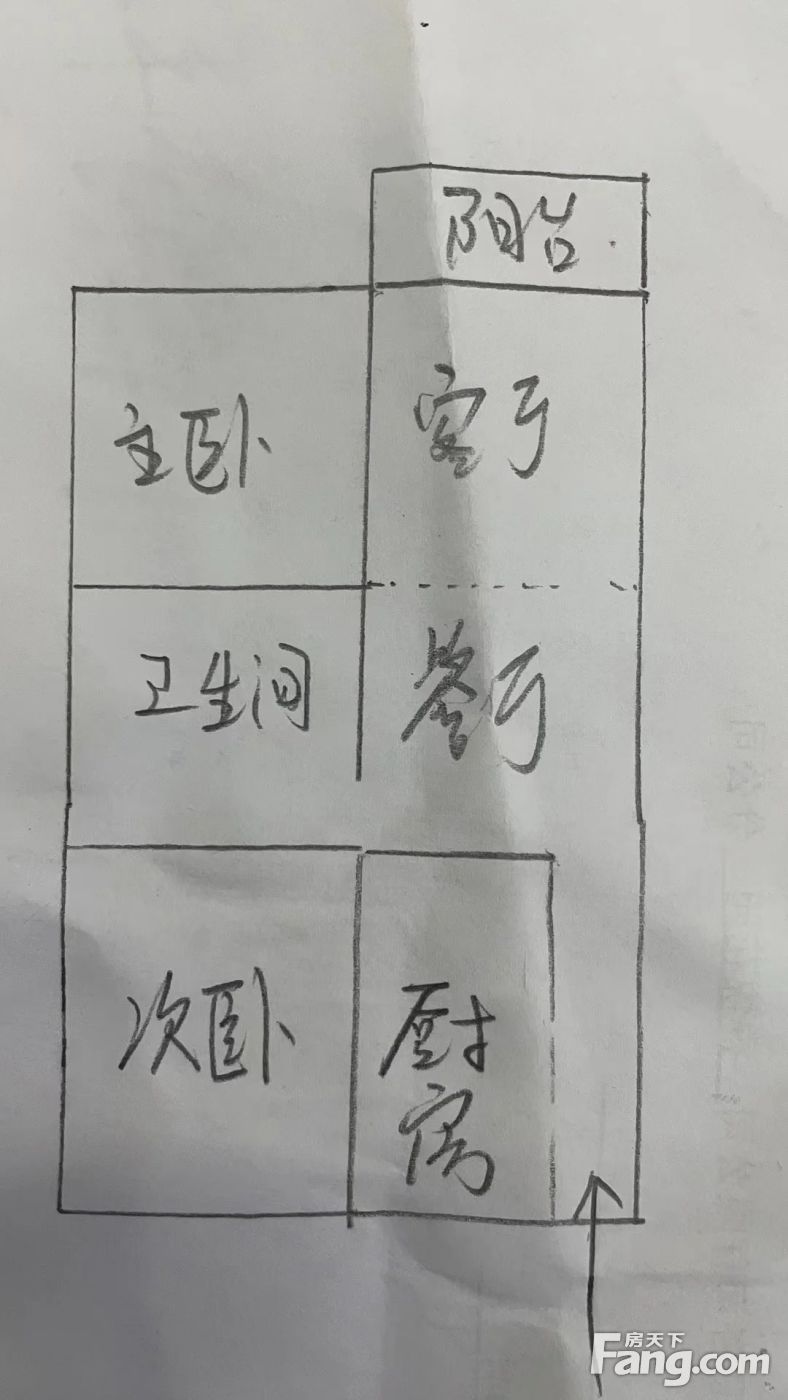 阳台
主卧
客厅
卫生间
餐厅
次卧
厨
房
房天下
Fang.com